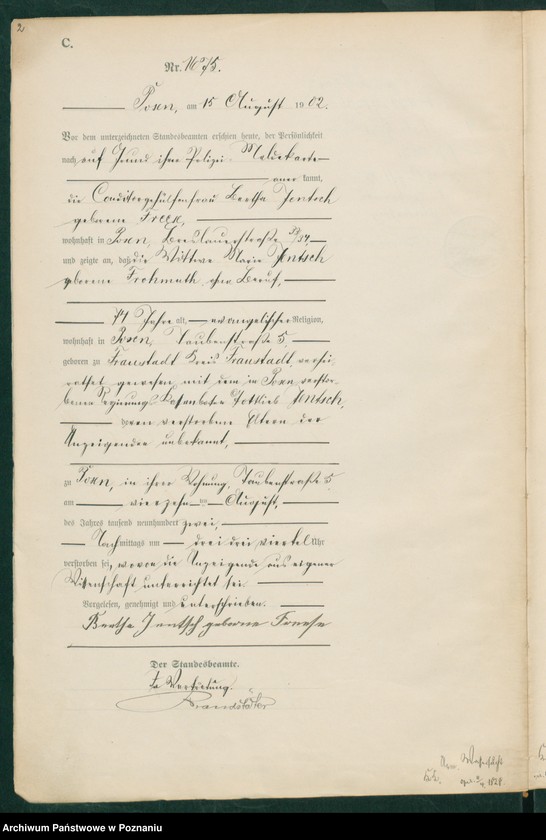 2
C.
Nr. 1675.
Posen, am 15 August 1902.
Vor dem unterzeichneten Standesbeamten erschien heute, der Persönlichkeit
nach auf Grund ihrer Polizei Meldekarte
anerkannt,
die Conditorgehülfenfrau Bertha Jentsch
geborene Freese,
wohnhaft in Posen, Breslauerstraße
und zeigte an, daß die Wittwe Maria Jentsch
geborene Frohmuth, ohne Beruf,
74 Jahre alt, evangelischer Religion,
wohnhaft in Posen, Taubenstraße 5.
geboren zu Fraustadt Kreis Fraustadt, verhei-
rathet gewesen mit dem in Posen verstor-
benen Regierungs Kassenboten Gottlieb Jentsch,
deren verstorbene Eltern der
Anzeigenden unbekannt,
zu Posen, in ihrer Wohnung, Taubenstraße 5.
am vierzehn ten August,
des Jahres tausend neunhundert zwei,
Nachmittags um drei drei viertel Uhr
verstorben sei, wovon die Anzeigende aus eigener
Wissenschaft unterrichtet sei.
Vorgelesen, genehmigt und unterschrieben.
Bertha Jentsch geborene Freese
Der Standesbeamte.
In Vertretung.
Archiwum Państwowe w Poznaniu